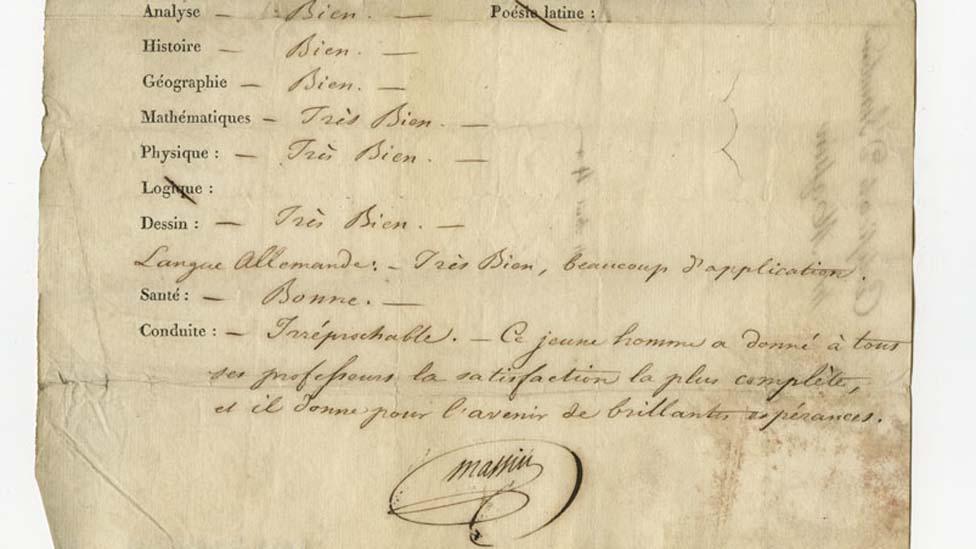 Analyse — Bien. — Poésie latine :
Histoire — Bien. —
Géographie — Bien. —
Mathématiques — Très Bien. —
Physique : — Très Bien. —
Logique :
Dessin : — Très Bien. —
Langue Allemande : — Très Bien, beaucoup d'application.
Santé : — Bonne. —
Conduite : — Irréprochable. — Ce jeune homme a donné à tous
ses professeurs la satisfaction la plus complète,
et il donne pour l'avenir de brillantes espérances.
Massin